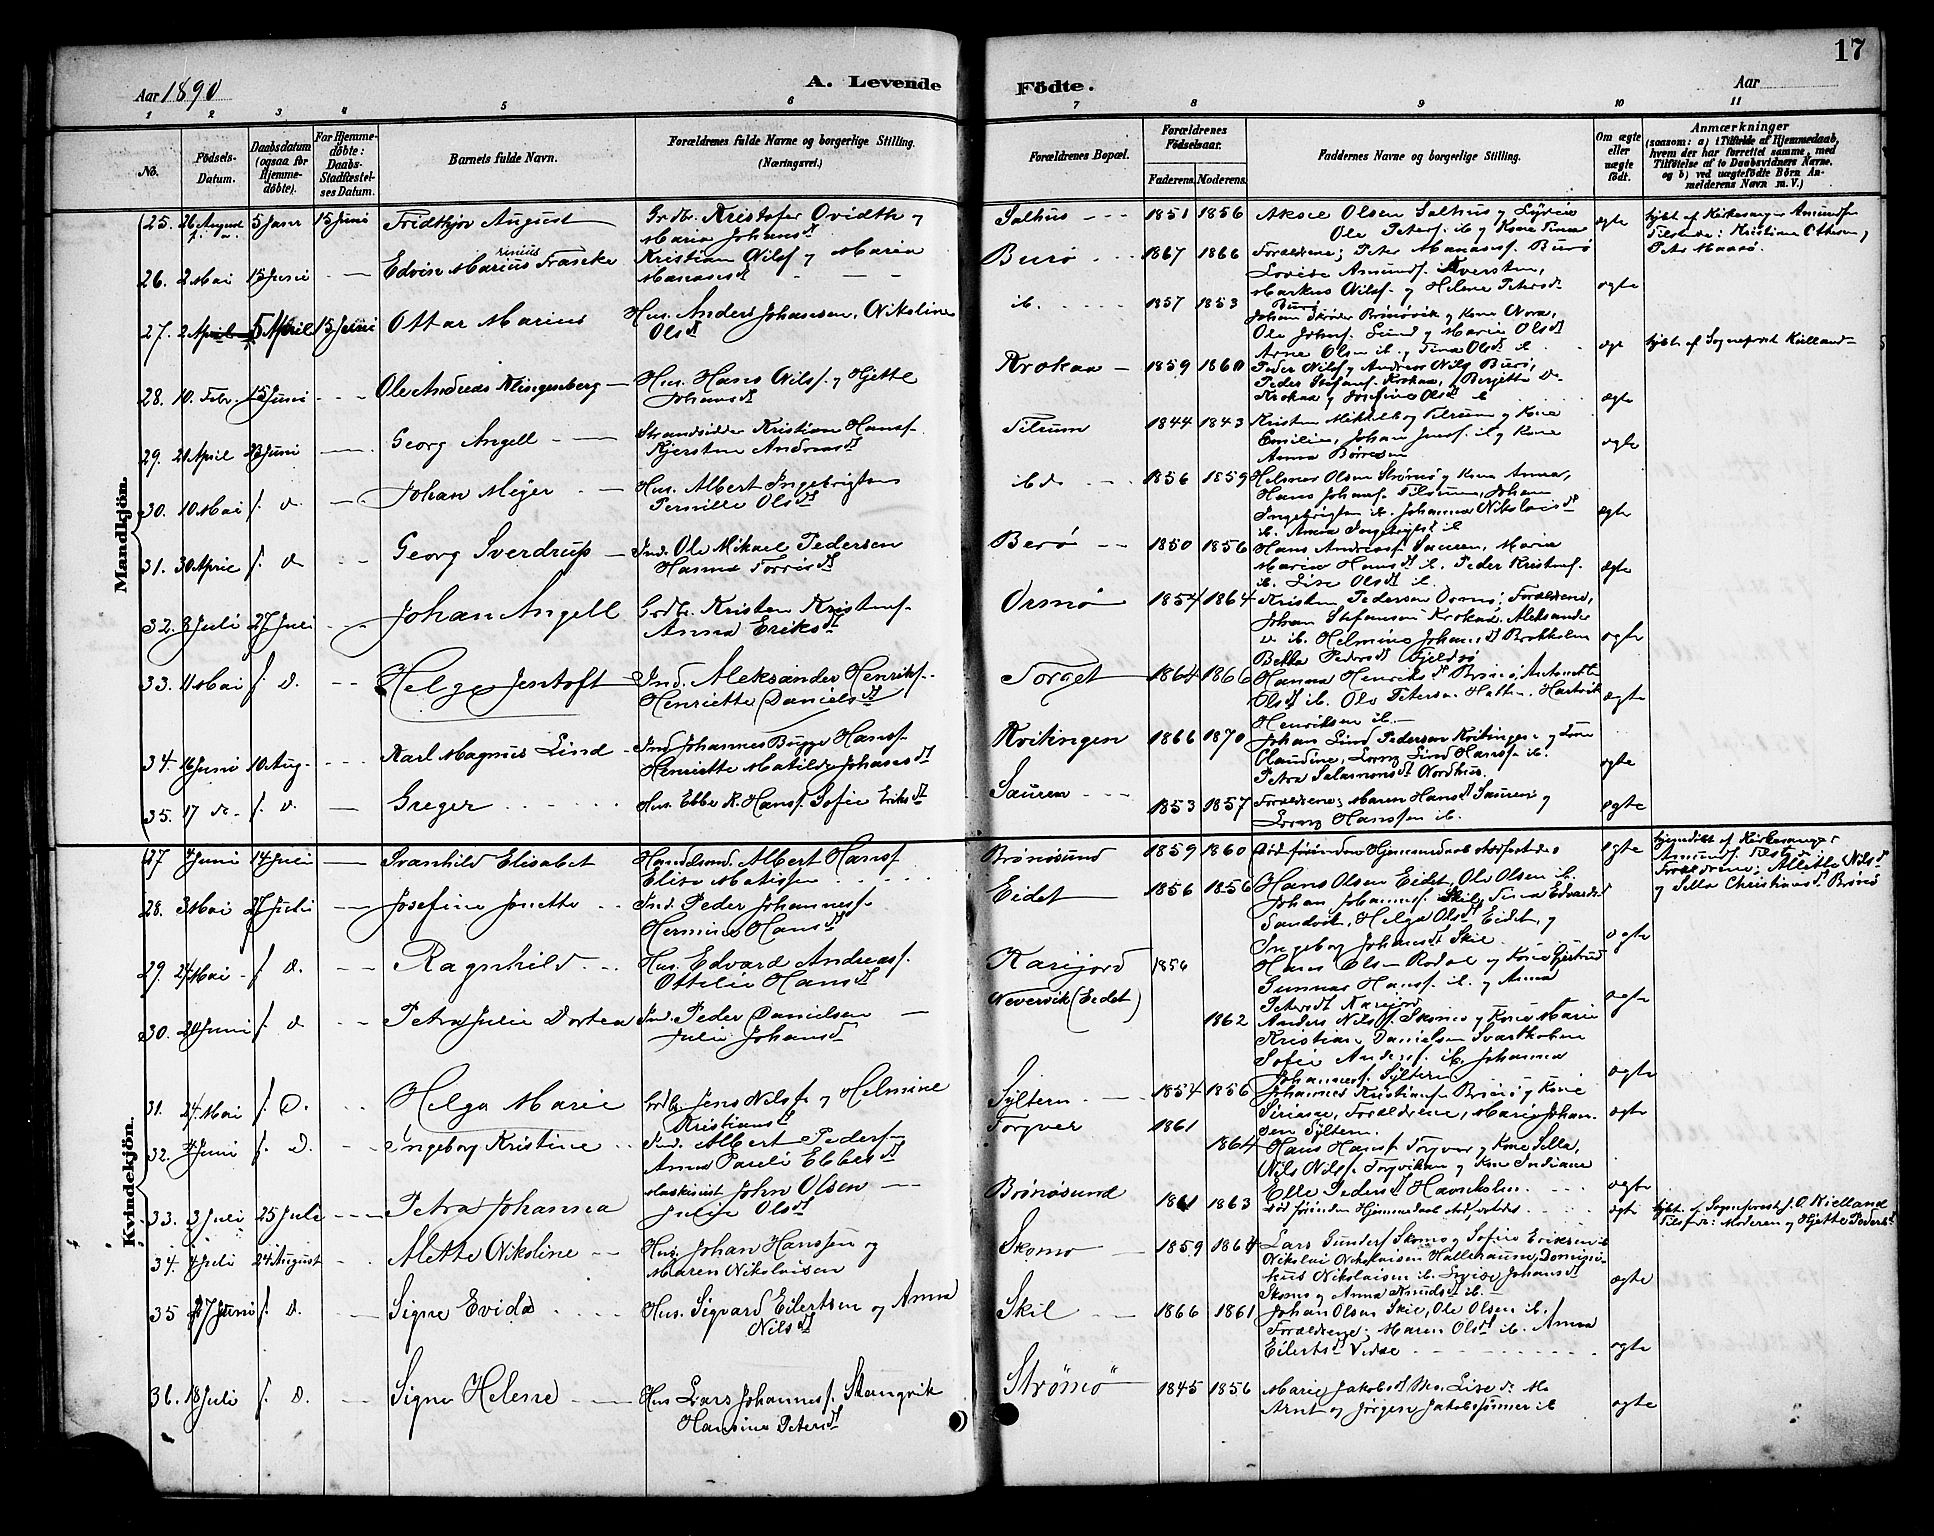 17
Aar 1890
A. Levende
Födte.
Aar
1 2 3 4 5 6 7 8 9 10 11
No.
Födsels-
Datum.
Daabsdatum
(ogsaa for
Hjemme-
döbte).
For Hjemme-
döbte:
Daabs-
Stadfæstel-
ses Datum.
Barnets fulde Navn.
Forældrenes fulde Navne og borgerlige Stilling.
(Næringsvei.)
Forældrenes Bopæl.
Forældrenes
Födselsaar.
Faderens. Moderens.
Faddernes Navne og borgerlige Stilling.
Om ægte
eller
uægte
födt.
Anmærkninger
(saasom: a) i Tilfælde af Hjemmedaab,
hvem der har forrettet samme, med
Tilföielse af to Daabsvidners Navne,
og b) ved uægtefödte Börn An-
melderens Navn m. V.)
Mandkjön.
25. 26 August 5 Janr 15 Juni Fridthjov August
Grdbr. Kristofer Ovidth og
Maria Johansdt
Salhus 1851 1856 Aksel Olsen Salhus og
Ole Peters. ib og Kone Tina
ægte
hjdbt af Kirkesanger Amundsen
26. 2 Mai 15 Juni Edvin Marius Franske
Kristian Nilsf og Maria
Manasesdt
Burø 1867 1866 Forældrene; Peter Manasesf. Burø
Markus Nilsf. og Helene Petersdt
Burø
ægte
27. 2 April 5 April 15 Juni Ottar Marius
Hus. Anders Johansen, Nikoline
Olsdt
ib. 1857 1853 Johan Skrøder Brønøvik og Kone Nora,
Ole Johnsf. Lund og Marie Olsdt
Arne Olsen ib. og Tina Olsdt ib
ægte
hjdbt. af Sogneprest Kielland
28. 10. Febr. 15 Juni Ole Andreas Klingenberg
Hus. Hans Nilsf. og Hjette
Johansdt
Krokaa 1859 1860 Peder Nilsf og Andreas Nils Burø,
Peder Stefansf. Krokaa, Bergitte do
Krokaa og Josefine Olsdt ib
ægte
29. 21 April 22 Juni Georg Angell
Strandsidder Kristian Hansf.
Kjersten Andreasdt
Tilrum 1844 1843 Kristen Mikkelborg Tilrum og Kone
Emilie, Johan Jensf. ib og Kone
Anna Børresen
ægte
30. 10 Mai f. d. Johan Mejer
Hus. Albert Ingebrigtsen
Pernille Olsdt
ibd. 1856 1859 Helmer Olsen Strømø og Kone Anna,
Hans Johansf. Tilrum, Johan
Ingebrigtsen ib. Johanna Nikolaisdt
ib. Anna Ingebrigtsdt ib
ægte
31. 30 April f. d. Georg Sverdrup
Ind. Ole Mikael Pedersen
Hanna Torrisdt
Berø 1850 1856 Hans Andreasf. Sauren, Marie
Maria Hansdt ib. Peder Kristensf.
ib. Lise Olsdt ib
ægte
32. 8 Juli 27 Juli Johan Angell
Grdbr. Kristen Kristensf.
Anna Eriksdt
Ormø 1854 1864 Kristen Pedersen Ormø; Forældrene,
Johan Stefansen Krokaa, Aleksander
do ib. Helmine Johansdt Brokholm
Betha Pedersdt Fjeldsø
ægte
33. 11 Mai f. d. Helge Jentoft
Ind. Aleksander Henriksf.
Henriette Danielsdt
Torget 1864 1866 Hanna Henriksdt Brønø, Antonette
Olsdt ib. Ole Peterson Hatten, Hartvik
Henriksen ib.
ægte
34. 16 Juni 10 Aug. Karl Magnus Lind
Ind Johannes Bugge Hansf.
Henriette Matilde Johansdt
Kvitingen 1866 1870 Johan Lind Pedersen Kvitingen og Kone
Claudine, Lorng Lind Hansf. ib.
Petra Salamonsdt Nordhus.
ægte
35. 17 do f. d. Greger
Hus. Ebbe R. Hansf. Sofie Eriksdt
Sauren 1853 1857 Forældrene; Maren Hansdt Sauren og
Lorng Hanssen ib.
ægte
Kvindekjön.
27 4 Juni 14 Juli Svanhild Elisabet
Handelsmd. Albert Hansf
Elise Matissen
Brønøsund 1859 1860 død førinden Hjemmedaab stadfæstedes
ægte
hjemdøbt af Kirkesanger
Amundsf. Tilstede:
Forældrene, Alette Nilsdt
og Silla Christiansdt Brønø
28. 3 Mai 27 Julie Josefine Jonette
Ind. Peder Johannesf.
Hermine Hansdt
Eidet 1856 1856 Hans Olsen Eidet, Ole Olsen ib.
Johan Johannesf. Skil, Tina Edvardsdt
Sandvik, Helga Olsdt Eidet, og
Ingeborg Johansdt Skil.
ægte
29. 24 Mai f. d. Ragnhild
Hus. Edvard Andreasf.
Ottilie Hansdt
Karijord 1856 Hans Olsen Rodal og Kone Gjertrud
Gunnar Hansf. ib. og Anna
Petersdt Karijord
ægte
30. 20 Juni f. d. Petra Julie Dortea
Ind. Peder Danielsen
Julie Johansdt
Nevervik (Eidet) 1862 Anders Nilsf. Skomo og Kone Marie
Kristian Danielsen Svartholmen
Sofie Andersf. ib. Johanna
Johannesf. Sylteren
ægte
31. 24. Mai f. D. Helga Marie
Grdbr. Jens Nilsf. og Helmine
Kristiansdt
Syltern 1854 1856 Johannes Kristiansf. Brønø og Kone
Siriane, Forældrene, Marie Johan-
sen Syltern.
ægte
32. 4 Juni f. D. Ingeborg Kristine
Ind. Albert Pedersf.
Anna Pauli Ebbesdt
Torgver 1861 1864 Hans Hansf Torgver og Kone Silla,
Nils Nilsf Torgvikan og Kone Indiane
Elle Pedersdt Havneholm
ægte
33. 3 Juli 25 Juli Petra Johanna
Maskinist John Olsen
Julie Olsdt
Brønøsund 1861 1863 død førinden Hjemmedaab stadfæstedes
ægte
hjdbt. af Sogneprest J. O. Kielland
Tilstede: Moderen og Hjette Pedersdt
34. 4 Juli 24 August Alette Nikoline
Hus. Johan Hanssen og
Maren Nikolaisen
Skomo 1859 1864 Lars Gundersf Skomo og Sofie Eriksen ib
Nikolai Nikolaisen Hallehaune, Domini-
kus Nikolaisen ib. Lovise Johansdt
Skomo og Anna Knudsdt ib
ægte
35 27 Juni f. d. Signe Evida
Hus. Sigvard Eilertsen og Anna
Nilsdt
Skil 1866 1861 Johan Olsen Skil, Ole Olsen ib.
Forældrene; Maren Olsdt ib. Anna
Eilertsdt Vedae
ægte
36. 18 Juli f. D. Signe Helene
Hus Lars Johannesf. Stangvik
Hansine Petersdt
Strømø 1845 1856 Marie Jakobsdt Mo. Lise do Mo
Arnt og Jørgen Jakobssønner ib
ægte